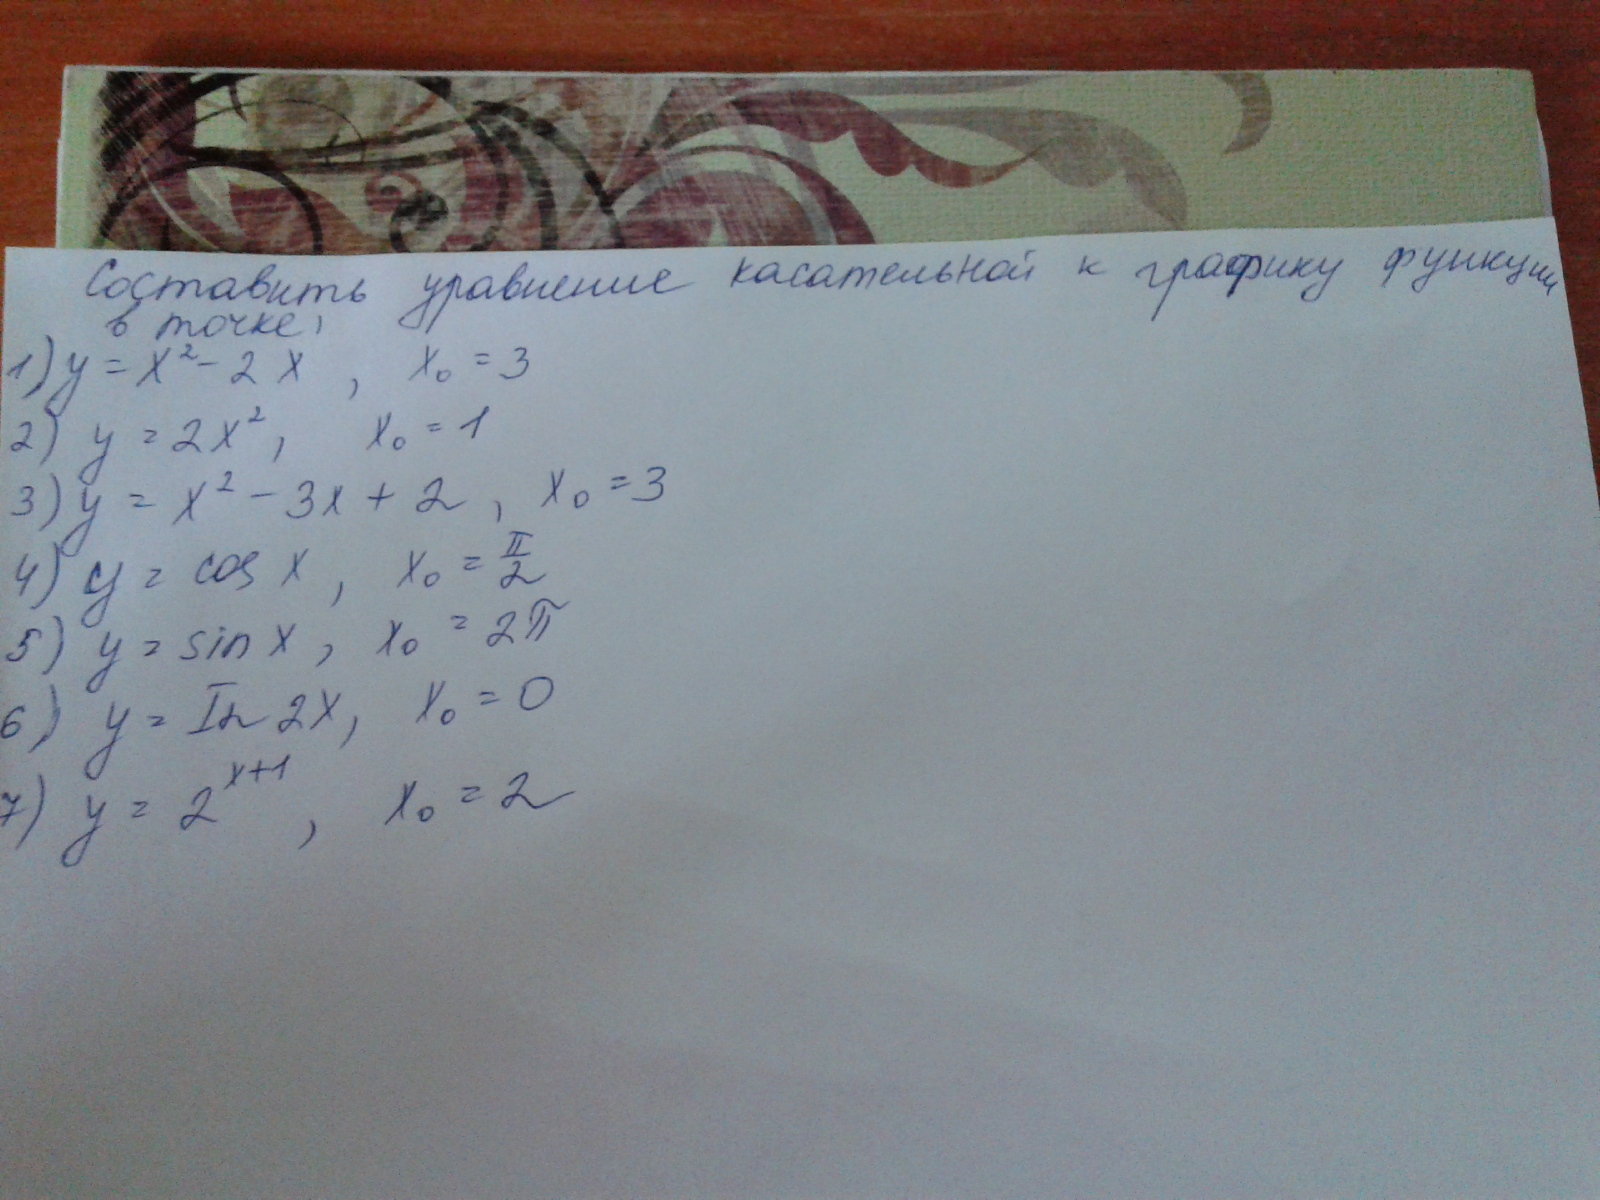 Составить уравнение касательной к графику функции
в точке,
1) y = x² - 2x , x₀ = 3
2) y = 2x², x₀ = 1
3) y = x² - 3x + 2 , x₀ = 3
4) y = cos x , x₀ = π/2
5) y = sin x , x₀ = 2π
6) y = In 2x, x₀ = 0
7) y = 2^(x+1) , x₀ = 2